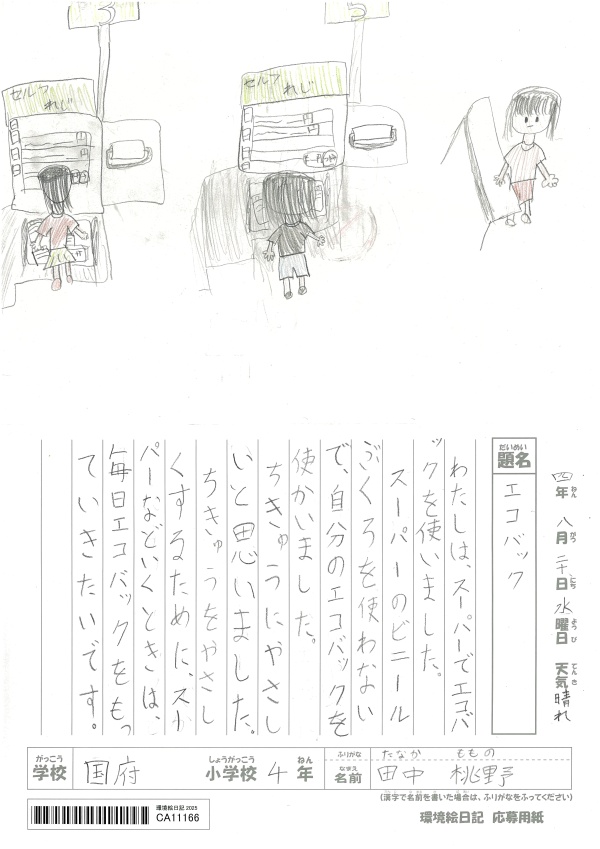 3
5
セルフ
れじ
セルフ
れじ
四年八月二十日水曜日 天気晴れ
ねん がつ にち ようび てんき
だいめい
題名
エコバック
わたしは、スーパーでエコバ
ックを使いました。
スーパーのビニール
ぶくろを使わない
で、自分のエコバックを
使かいました。
ちきゅうにやさし
いと思いました。
ちきゅうをやさし
くするために、スー
パーなどいくときは、
毎日エコバックをもっ
ていきたいです。
がっこう
学校
国府
しょうがっこう
小学校
4
ねん
年
ふりがな
たなか ももの
なまえ
名前
田中 桃野
(漢字で名前を書いた場合は、ふりがなをふってください)
環境絵日記2025
CA11166
環境絵日記 応募用紙